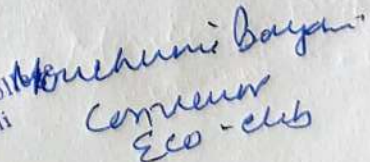 Mouchumi Bayan
Convenor
Eco-club